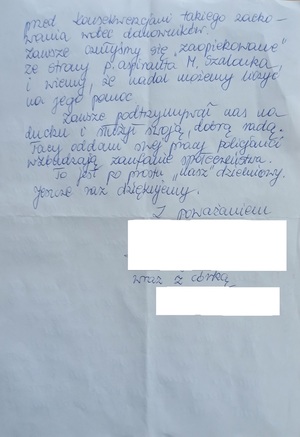 przed konsekwencjami takiego zacho-
wania wobec domowników.
Zawsze czułyśmy się "zaopiekowane"
ze strony p. aspiranta M. Szalanka,
i wiemy, że nadal możemy liczyć
na jego pomoc
Zawsze podtrzymywał nas na
duchu i służył swoją, dobrą radą.
Tacy oddani swej pracy policjanci
wzbudzają zaufanie społeczeństwa.
To jest po prostu "nasz" dzielnicowy.
Jeszcze raz dziękujemy.
Z poważaniem
wraz z córką